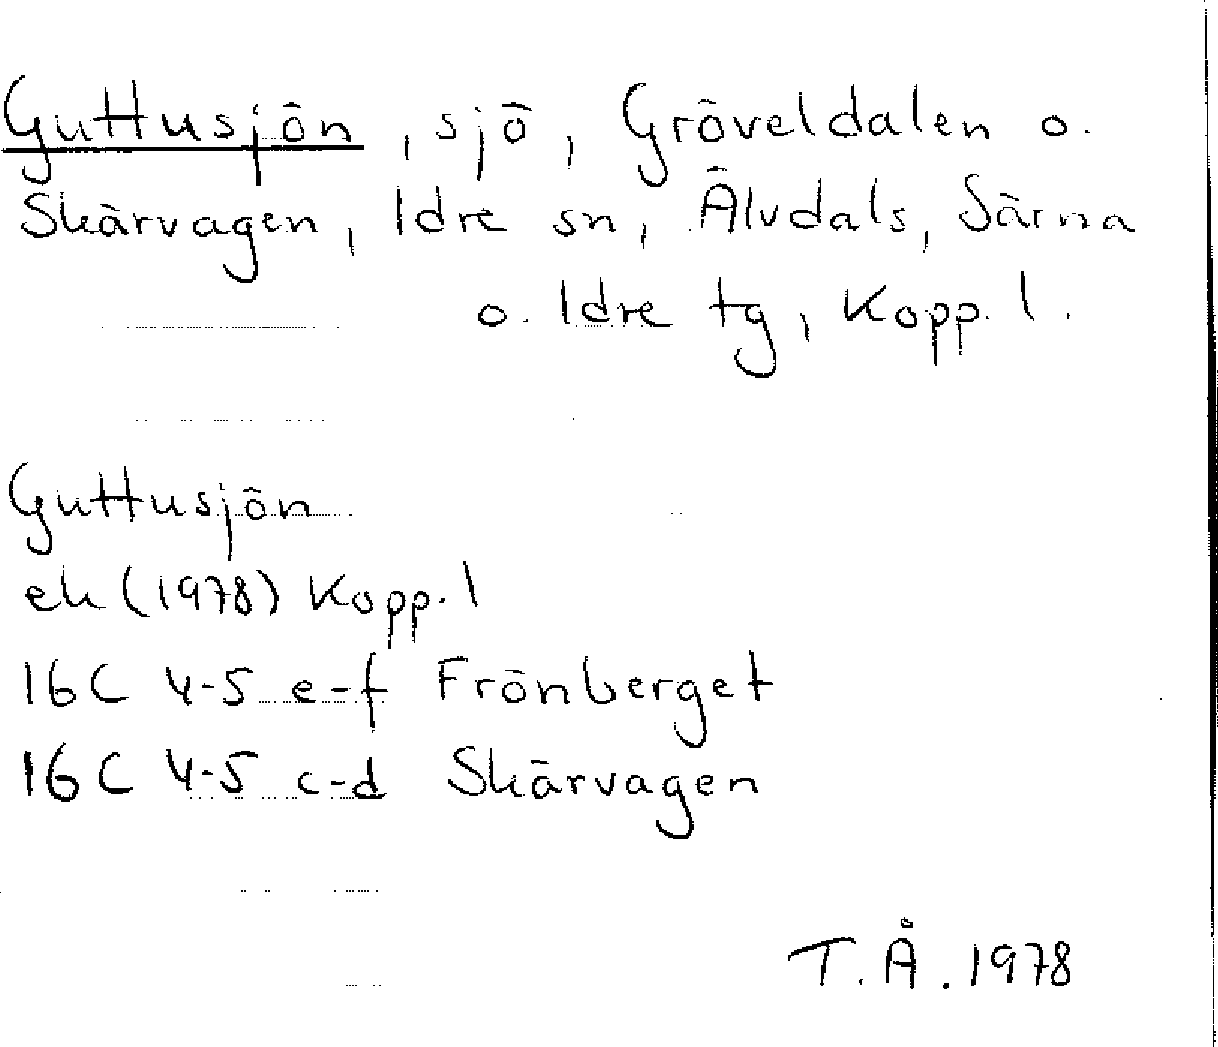 Guttusjön, sjö, Gröveldalen o.
Skärvagen, Idre sn, Älvdals, Särna
o. Idre tg, Kopp. l.
Guttusjön
ek (1978) Kopp. l
16C 4-5 e-f Frönberget
16C 4-5 c-d Skärvagen
T.Å. 1978